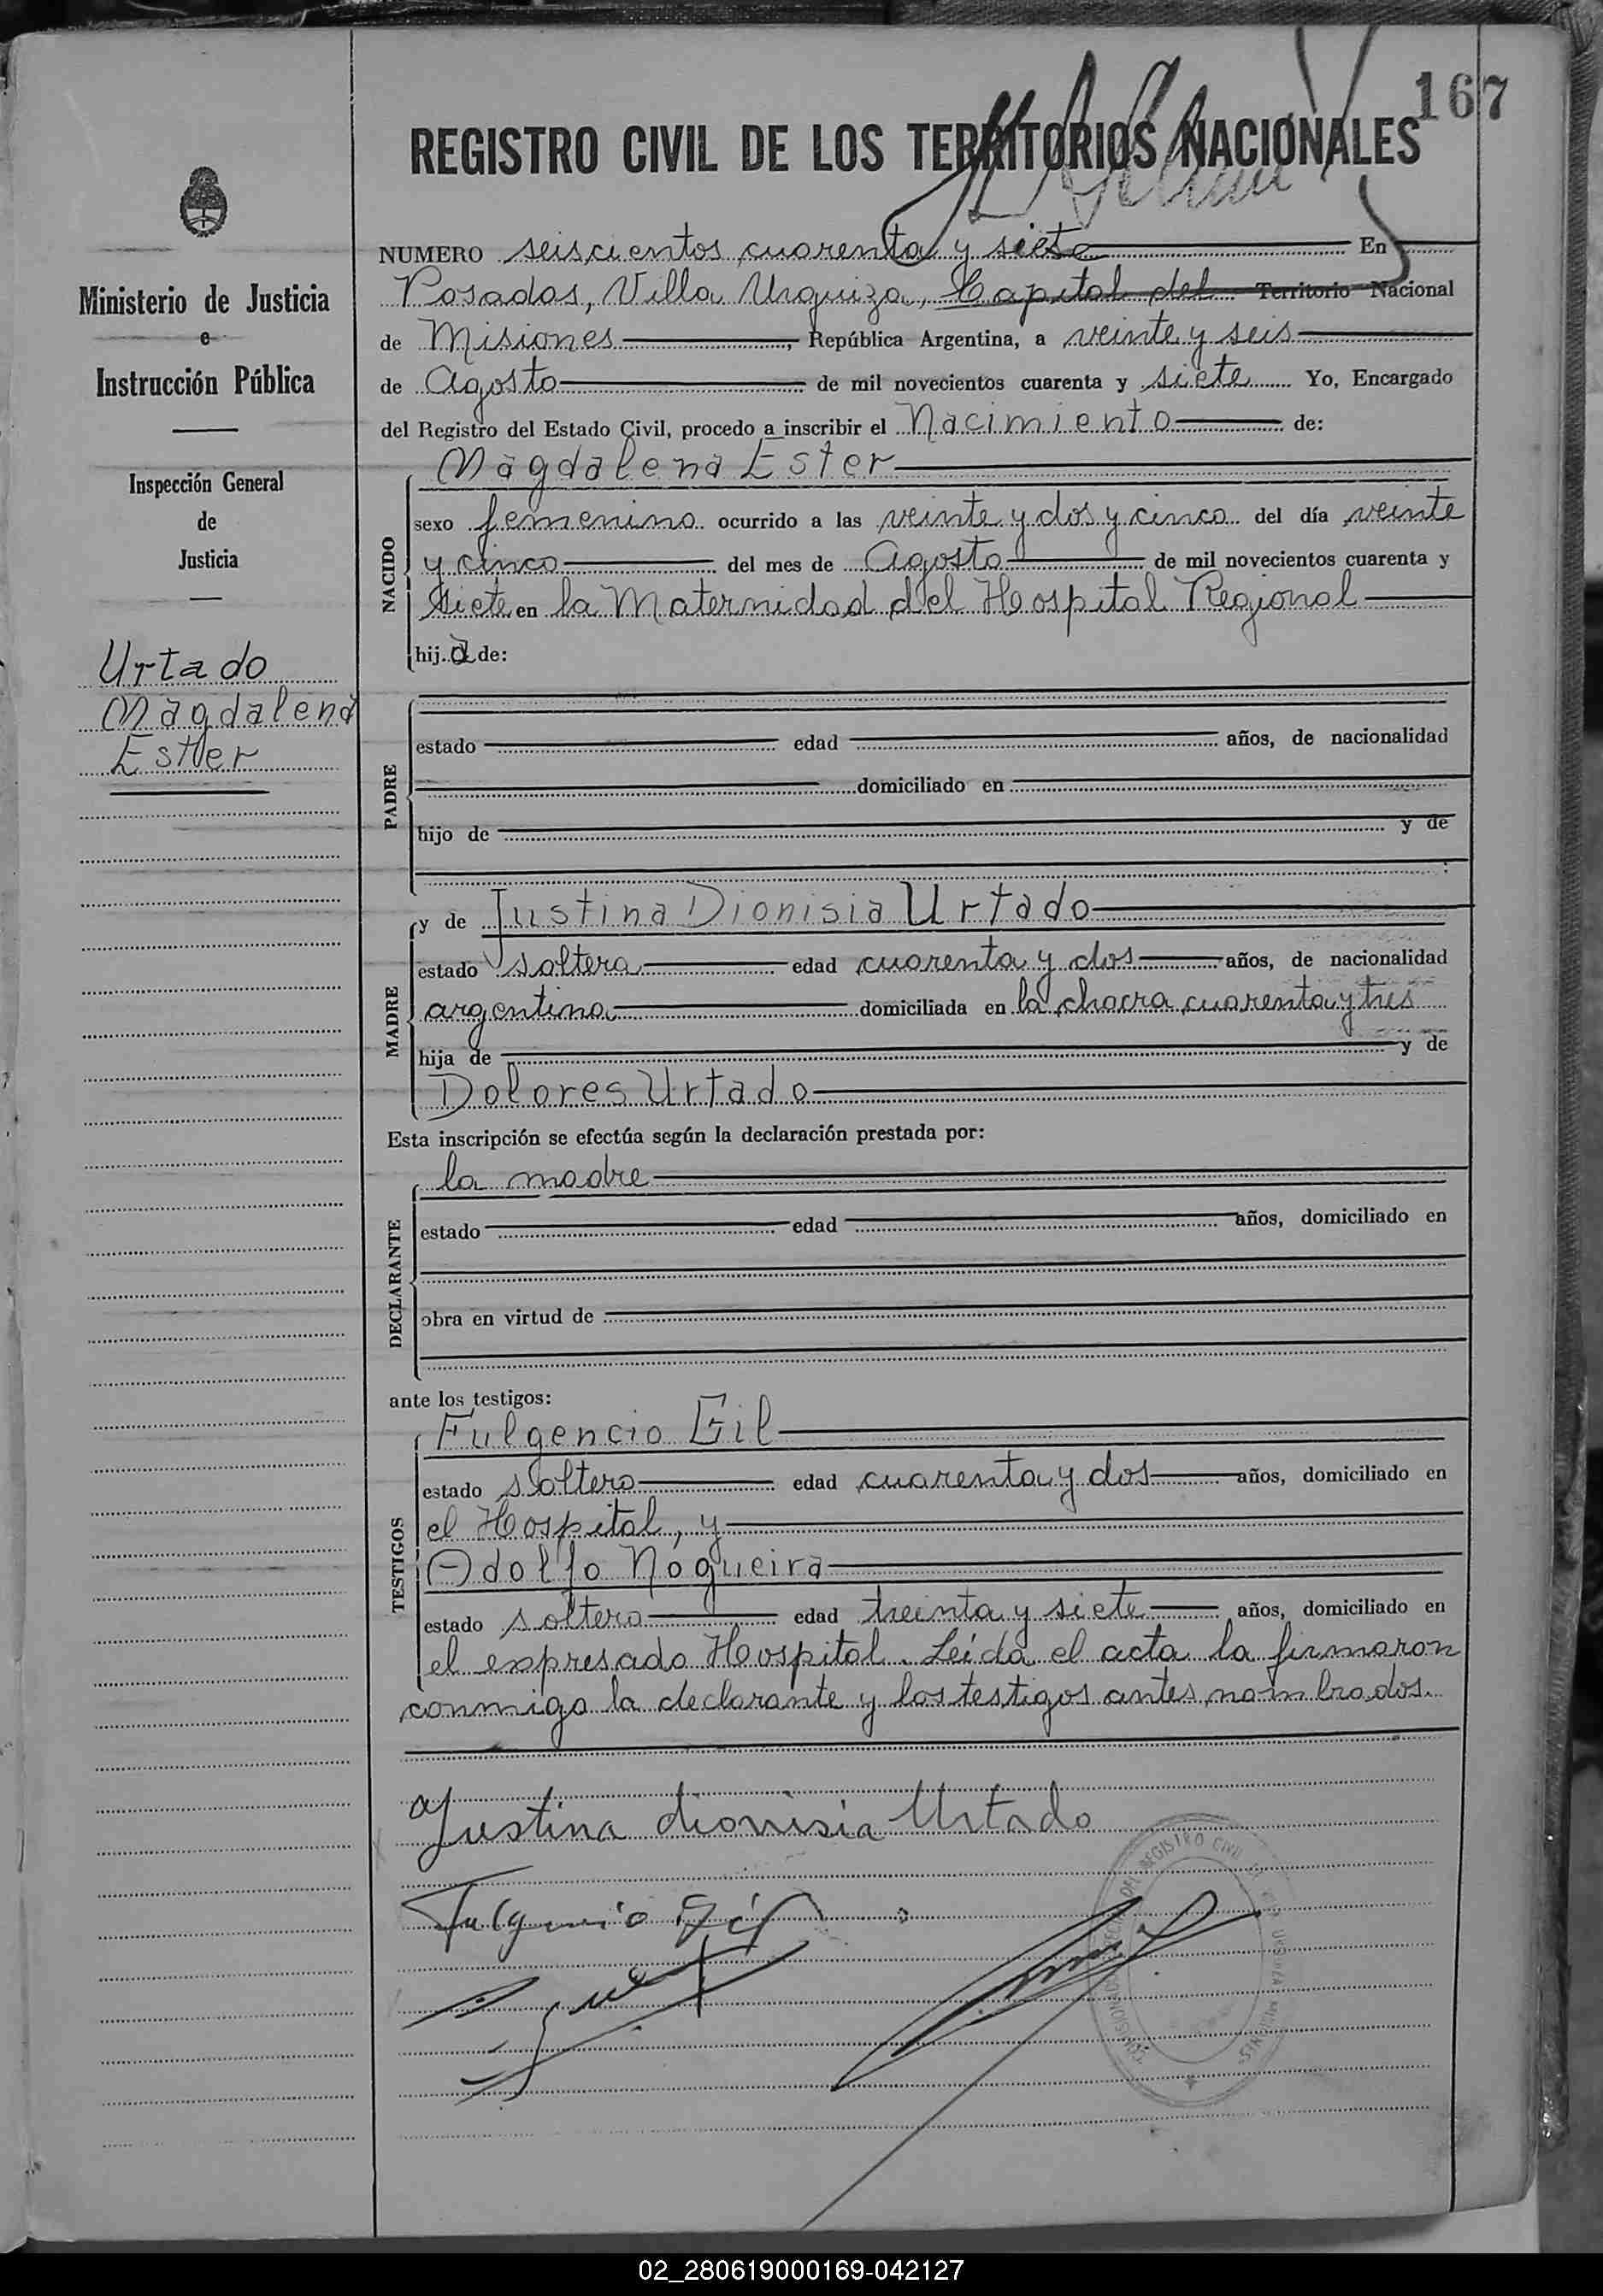 167
REGISTRO CIVIL DE LOS TERRITORIOS NACIONALES
Ministerio de Justicia
e
Instrucción Pública
Inspección General
de
Justicia
Urtado
Magdalena
Ester
NUMERO seiscientos cuarenta y siete En
Posadas, Villa Urquiza, Capital del Territorio Nacional
de Misiones, República Argentina, a veinte y seis
de Agosto de mil novecientos cuarenta y siete Yo, Encargado
del Registro del Estado Civil, procedo a inscribir el Nacimiento de:
NACIDO
Magdalena Ester
sexo femenino ocurrido a las veinte y dos y cinco del día veinte
y cinco del mes de Agosto de mil novecientos cuarenta y
siete en la Maternidad del Hospital Regional
hija de:
PADRE
estado edad años, de nacionalidad
domiciliado en
hijo de y de
MADRE
y de Justina Dionisia Urtado
estado soltera edad cuarenta y dos años, de nacionalidad
argentina domiciliada en la chacra cuarenta y tres
hija de y de
Dolores Urtado
Esta inscripción se efectúa según la declaración prestada por:
DECLARANTE
la madre
estado edad años, domiciliado en
obra en virtud de
ante los testigos:
TESTIGOS
Fulgencio Gil
estado soltero edad cuarenta y dos años, domiciliado en
el Hospital, y
Adolfo Nogueira
estado soltero edad treinta y siete años, domiciliado en
el expresado Hospital. Leída el acta la firmaron
conmigo la declarante y los testigos antes nombrados.
Justina dionisia Urtado
Fulgencio Gil
REGISTRO CIVIL
02_280619000169-042127